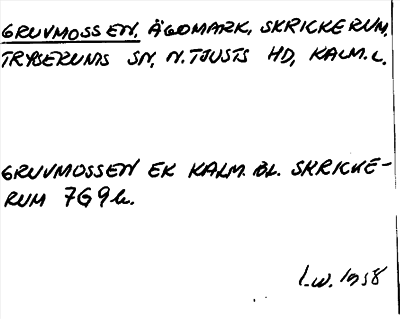 GRUVMOSSEN, ÄGOMARK, SKRICKERUM,
TRYSERUMS SN, N. TJUSTS HD, KALM. L.
GRUVMOSSEN EK KALM. BL. SKRICKE-
RUM 7G 9b.
I.W. 1958